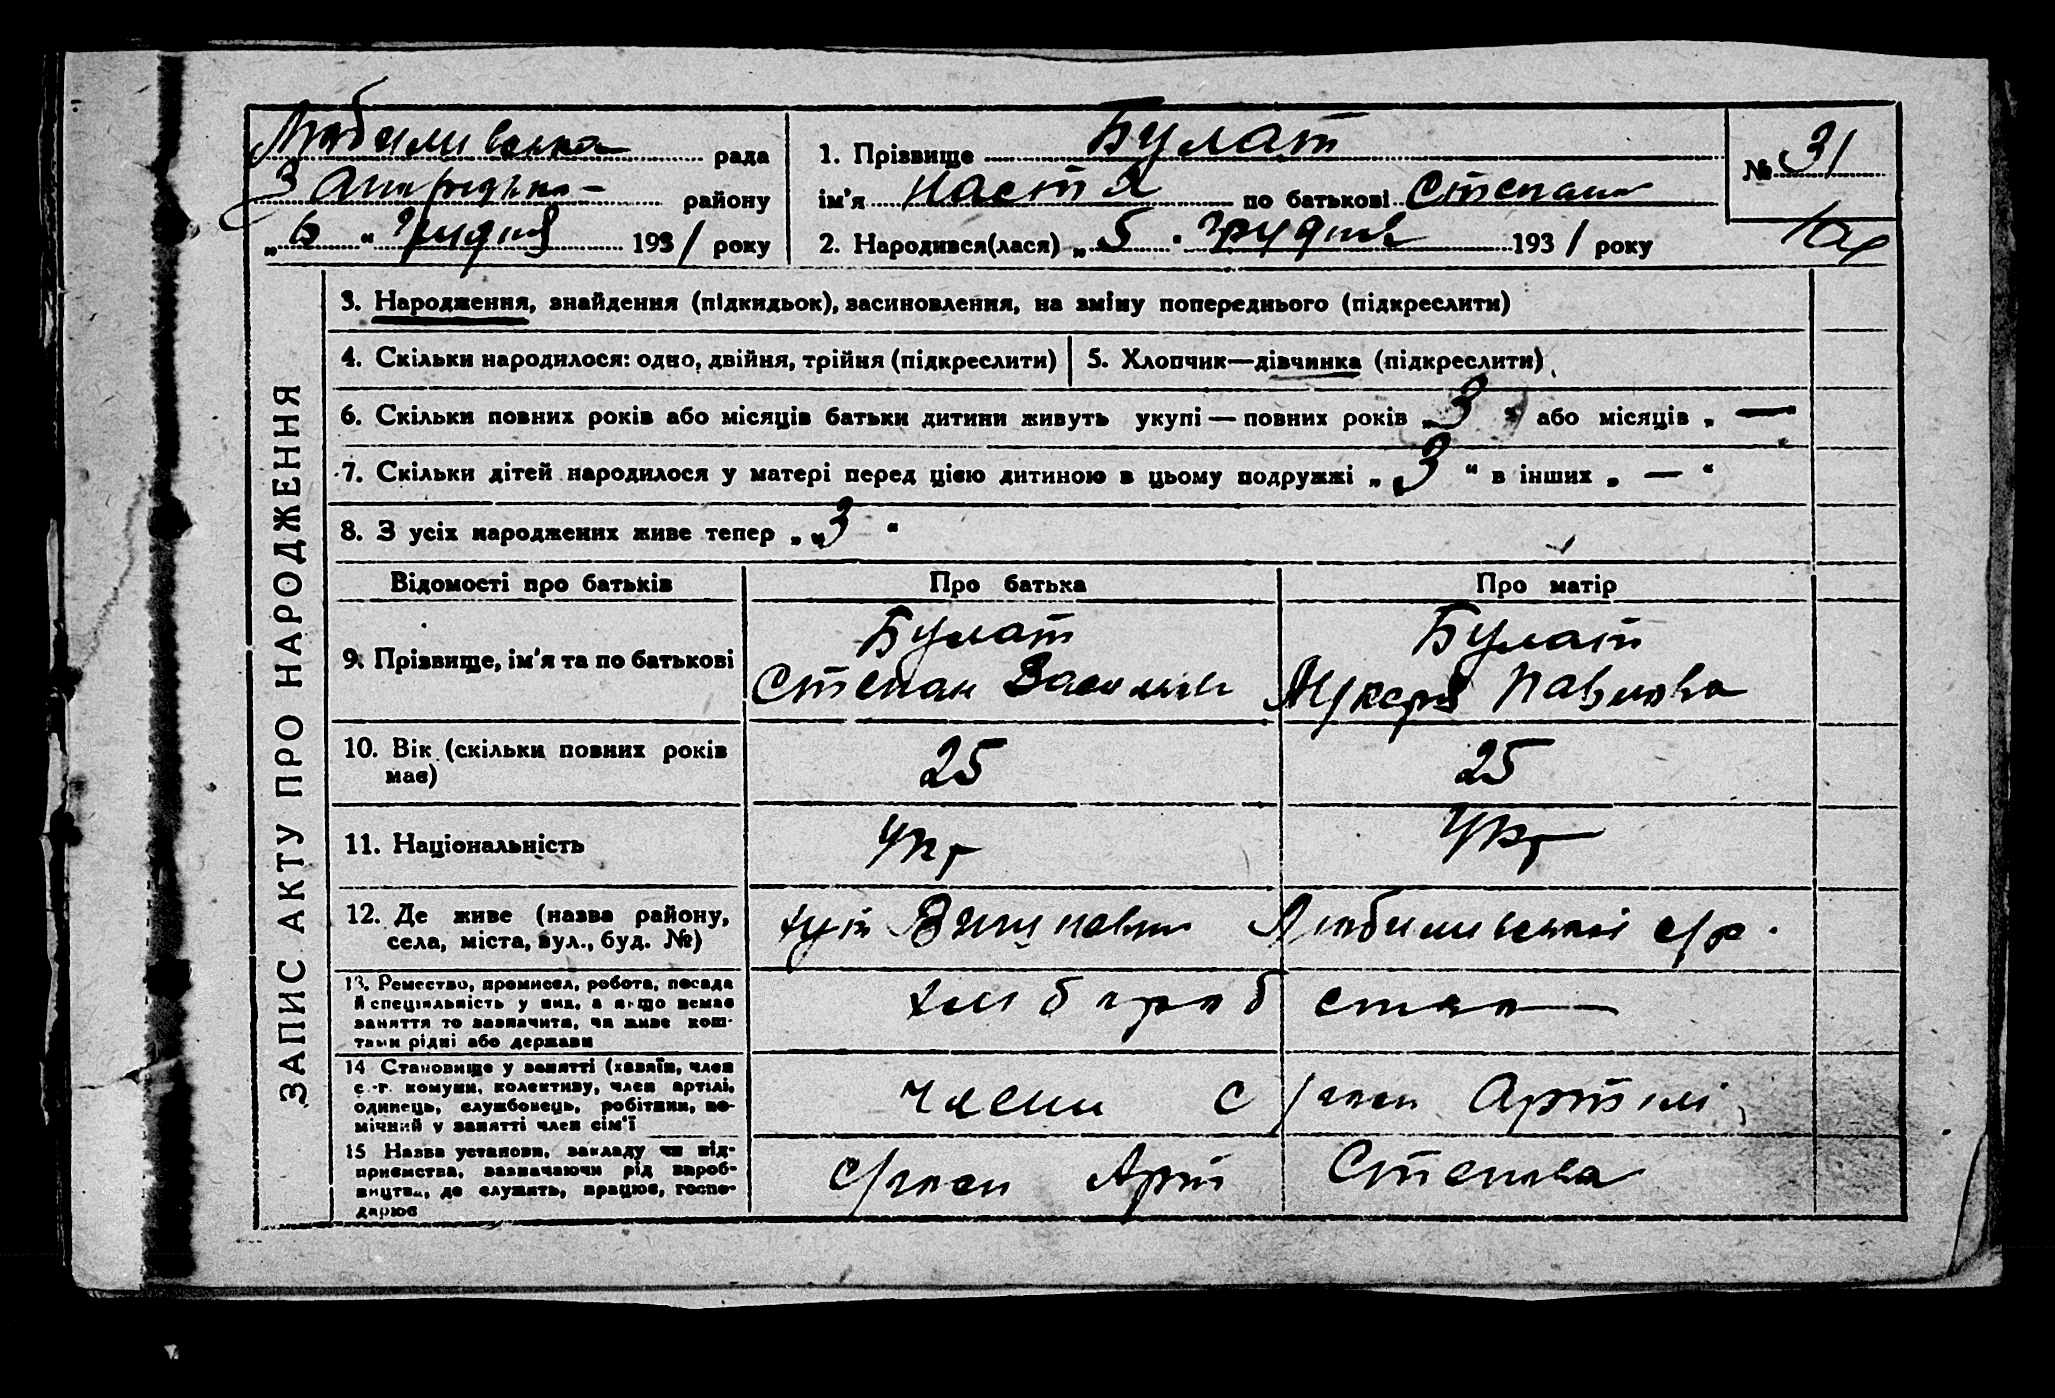 Любимівська рада
Запорізько- району
„6" грудня 1931 року
1. Прізвище Булат
ім'я Настя по батькові Степани
2. Народився(лася) „5" грудня 1931 року
№ 31
ЗАПИС АКТУ ПРО НАРОДЖЕННЯ
3. Народження, знайдення (підкидьок), засиновлення, на зміну попереднього (підкреслити)
4. Скільки народилося: одно, двійня, трійня (підкреслити)
5. Хлопчик—дівчинка (підкреслити)
6. Скільки повних років або місяців батьки дитини живуть укупі — повних років „3" або місяців „—"
7. Скільки дітей народилося у матері перед цією дитиною в цьому подружжі „3" в інших „—"
8. З усіх народжених живе тепер „3"
Відомості про батьків Про батька Про матір
9. Прізвище, ім'я та по батькові
Булат
Степан Василів
Булат
Павлова
10. Вік (скільки повних років
має)
25
25
11. Національність
Укр
Укр
12. Де живе (назва району,
села, міста, вул., буд. №)
хут Любимівської с/р.
13. Ремество, промисел, робота, посада
й спеціяльність у них, а якщо немає
заняття то зазначити, чи живе кош-
тами рідні або держави
хліборобство
14 Становище у занятті (хазяїн, член
с.-г. комуни, колективу, член артілі,
одинець, службовець, робітник, по-
мічний у занятті член сім'ї
члени с/госп Артілі
15 Назва установи, закладу чи під-
приємства, зазначаючи рід вироб-
ництва, де служить, працює, госпо-
дарює
с/госп Арт Степова